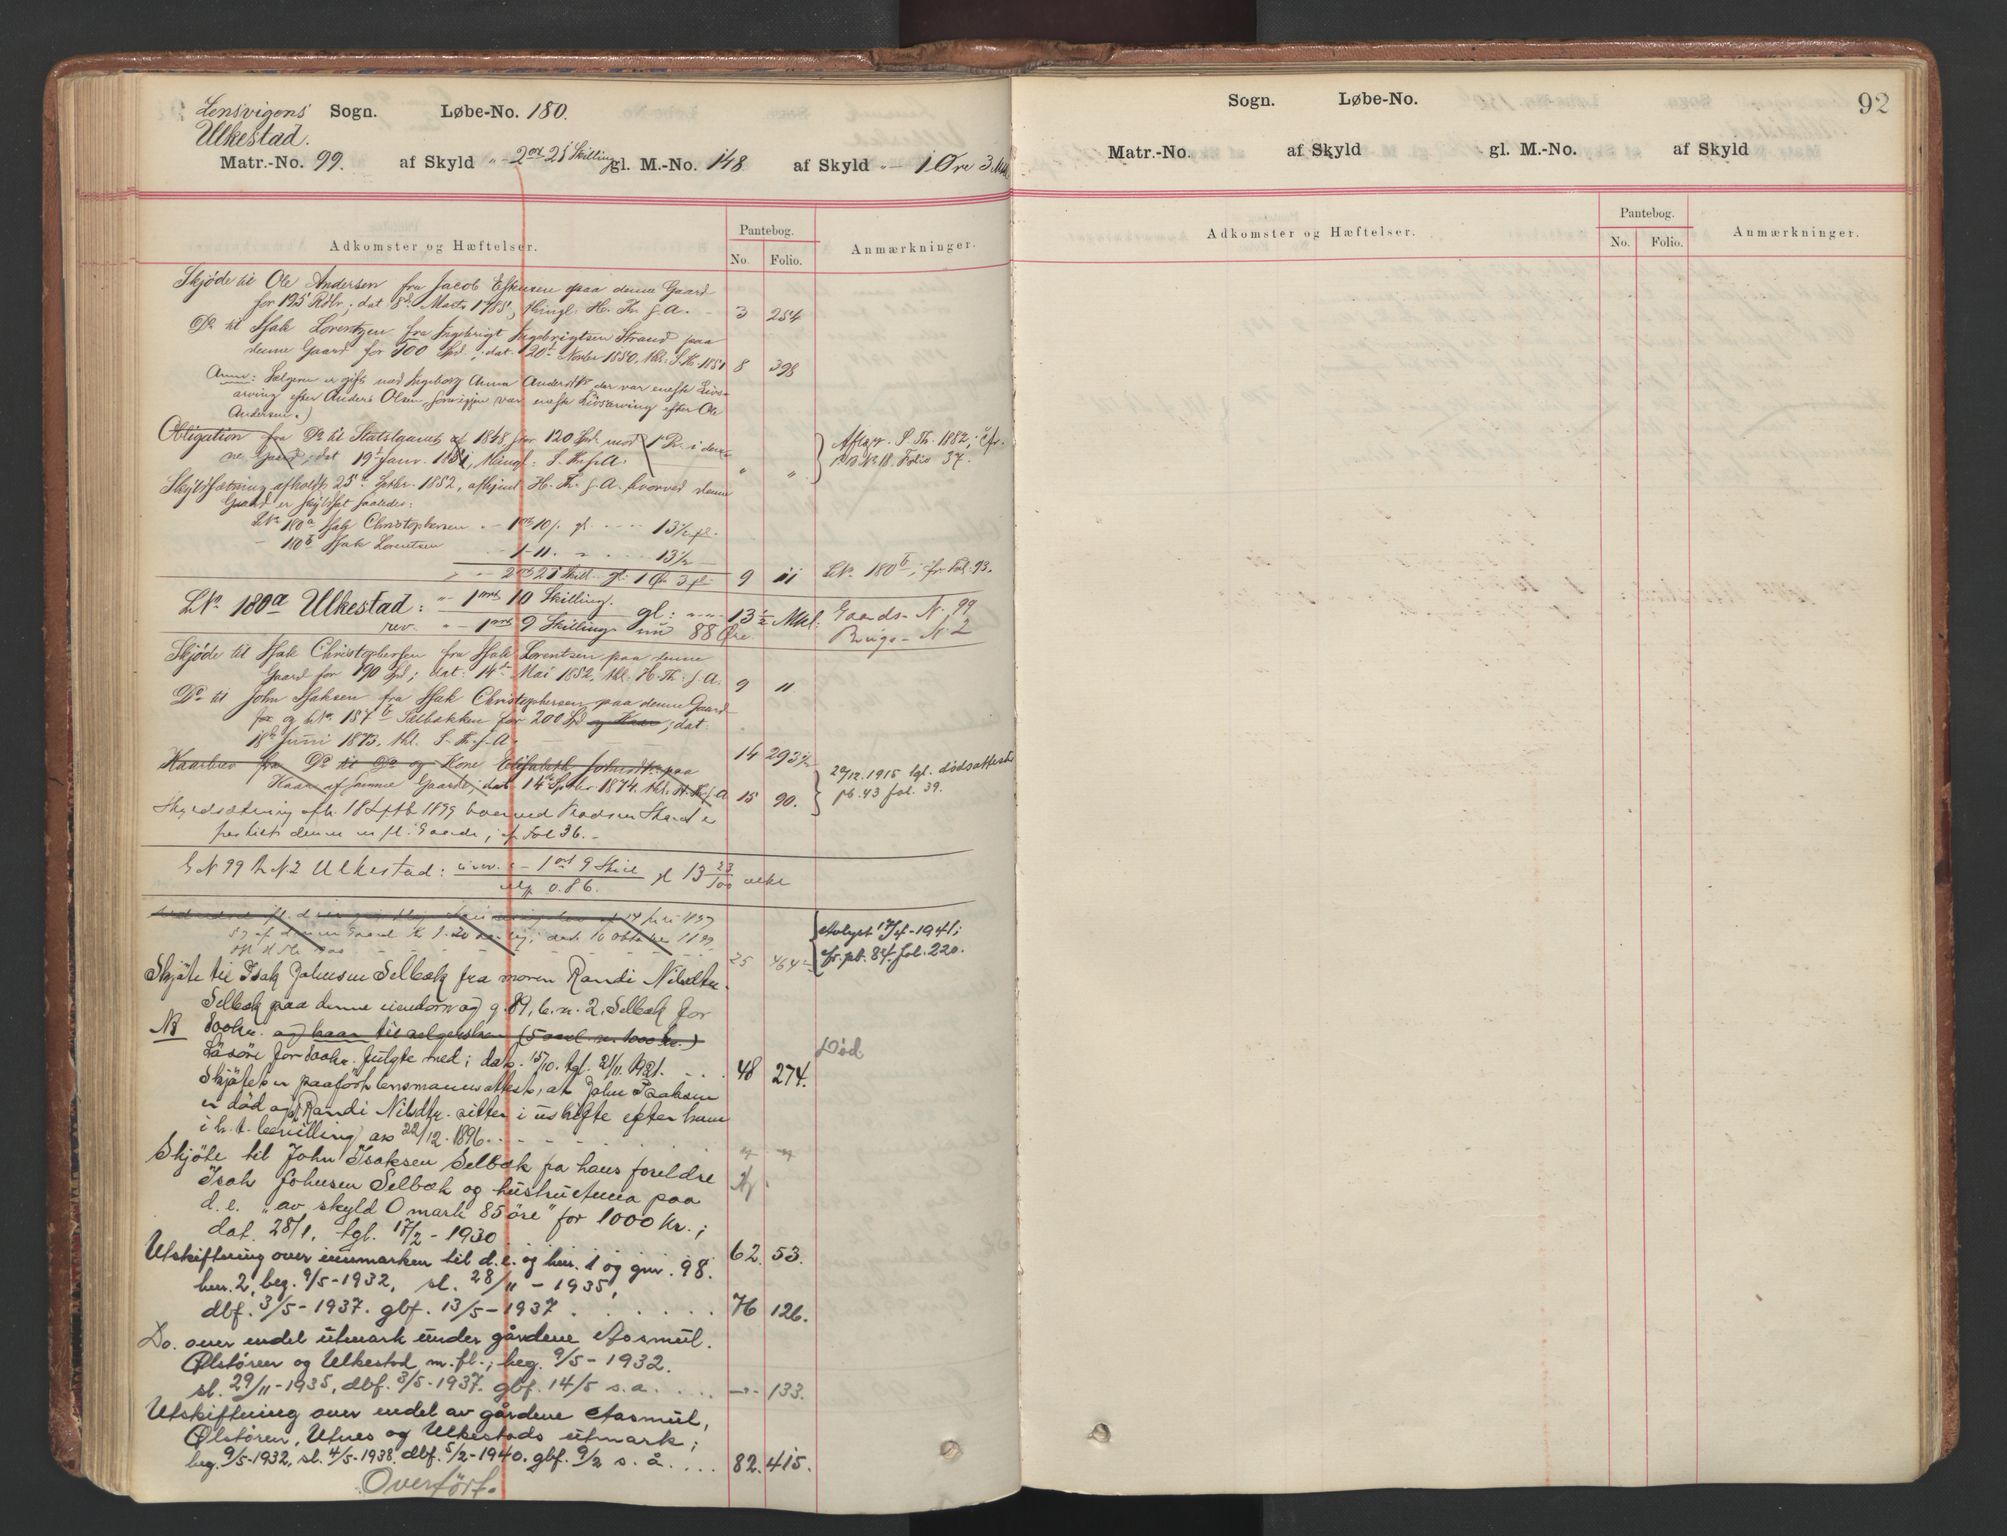 Lensvigens Sogn. Løbe-No. 180.
Ulkestad.
Matr.-No. 99. af Skyld " - 2 ort 21 Skilling gl. M.-No. 148 af Skyld " - 1 Øre 3 Mkl
Adkomster og Hæftelser. Pantebog. No. Folio. Anmærkninger.
Skjøde til Ole Andersen fra Jacob Espensen paa denne Gaard
for 125 Rdlr; dat. 8d Marts 1785, thingl. H. Th. s. A. 3 254
Do til Isak Lorentzen fra Ingebrigt Ingebrigtsen Strand paa
denne Gaard for 500 Spd; dat. 20t Novbr 1850, thl. S. Th. 1851 8 398
Anm: Sælgeren er gift med Ingeborg Anna Andersdtr der var eneste Livs-
arving efter Anders Olsen, som igjen var eneste Livsarving efter Ole
Andersen.)
Obligation fra Do til Statslaanet af 1848 for 120 Spd. mod 1 Pr. i den-
ne Gaard; dat 19t Janv. 1851, thingl: S. Th. s. A. " " Aflyst. S. Th. 1882; cfr.
P. B. No 18. Folio 37.
Skyldsætning afholdt 25d Septbr. 1852, afhjml. H. Th. s. A. hvorved denne
Gaard er skyldsat saaledes:
LNo 180a Isak Christophersen " - 1 ort 10 s. gl. 13 1/2 ml.
- 180b Isak Lorentsen 1 - 11. " 13 1/2
" - 2 ort 21 Skill. gl: 1 Øre 3 ml 9 11 LNo 180b, cfr. Fol. 93.
LNo 180a Ulkestad: " - 1 ort 10 Skilling. gl: " " 13 1/2 Mkl. Gaards-N. 99
rev. " - 1 ort 9 Skilling nu 88 Øre Brugs-N. 2
Skjøde til Isak Christophersen fra Isak Lorentsen paa denne
Gaard for 190 Spd; dat: 14d Mai 1852, thl. H. Th. s. A. 9 11
Do til John Isaksen fra Isak Christophersen paa denne Gaard
og LNo 187b Sælbækken for 200 Spd og Kaar; dat.
18d Juni 1873, thl. S. Th. s. A. 14 293
Kaarbrev fra Do til Do og Kone Elisabeth Johnsdtr paa
Kaar af samme Gaarde; dat. 14d Septbr 1874. thl. H. Th. s. A. 15 90. 29/12.1915 tgl. dødsattest
pb. 43 fol. 39.
Skyldsætning afh. 18 Septb 1899 hvorved Pladsen Strand er
fraskilt denne m fl. Gaarde; cf Fol 36. -
G N 99 B N 2 Ulkestad: urev. " - 1 ort 9 Skill gl 13 23/100 mkl
skyld 0.86.
af denne Gaard dat. 10 Oktober 1899 25 464 Avlyst 17/4-1941;
cfr. pb. 84. fol. 220.
Skjøte til Isak Johnsen Selbæk fra moren Randi Nilsdtr.
Selbæk paa denne eiendom og g. 89, b. n. 2, Selbæk for
NB 800 kr. og kaar til sælgersken (5 aarl. v. 1000 kr.)
Løsøre for 800 kr. fulgte med; dat. 15/10. tgl. 21/11. 1921. 48 274. Død
Skjøtet er paaført lensmannsattest, at John Isaksen
er død og at Randi Nilsdtr. sitter i uskifte efter ham
i h. t. bevilling av 22/12. 1896. " "
Skjøte til John Isaksen Selbæk fra hans foreldre
Isak Johnsen Selbæk og hustru Anna paa
d. e. "av skyld 0 mark 85 øre" for 1000 kr.;
dat. 28/1, tgl. 17/2 - 1930 62. 53.
Utskiftning over innmarken til d. e. og bnr. 1 og gnr. 98.
bnr. 2, beg. 9/5-1932, sl. 28/11-1935,
dbf. 3/5-1937. gbf. 13/5-1937 . . . . . 76 126.
Do. over endel utmark under gårdene Aasmul.
Ølstøren og Ulkestad m. fl.; beg. 9/5-1932.
sl. 29/11-1935, dbf. 3/5-1937. gbf. 14/5 s. a. . . . . -"- 133.
Utskiftning over endel av gårdene Aasmul,
Ølstøren, Utnes og Ulkestads utmark;
beg. 9/5-1932, sl. 4/5-1938. dbf. 5/2-1940. gbf. 9/2 s. å. . . . . 82. 415.
Overført.
92
Sogn. Løbe-No.
Matr.-No. af Skyld gl. M.-No. af Skyld
Adkomster og Hæftelser. Pantebog. No. Folio. Anmærkninger.